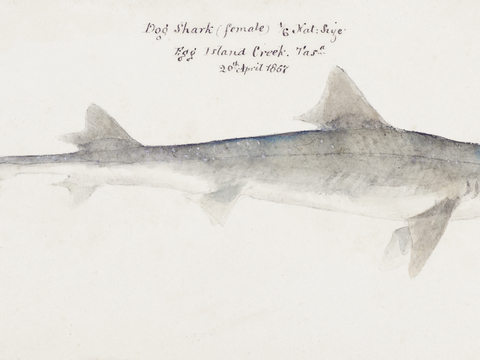 Dog Shark (female) 1/6 Nat: Size
Egg Island Creek. Tasa
20th April 1867